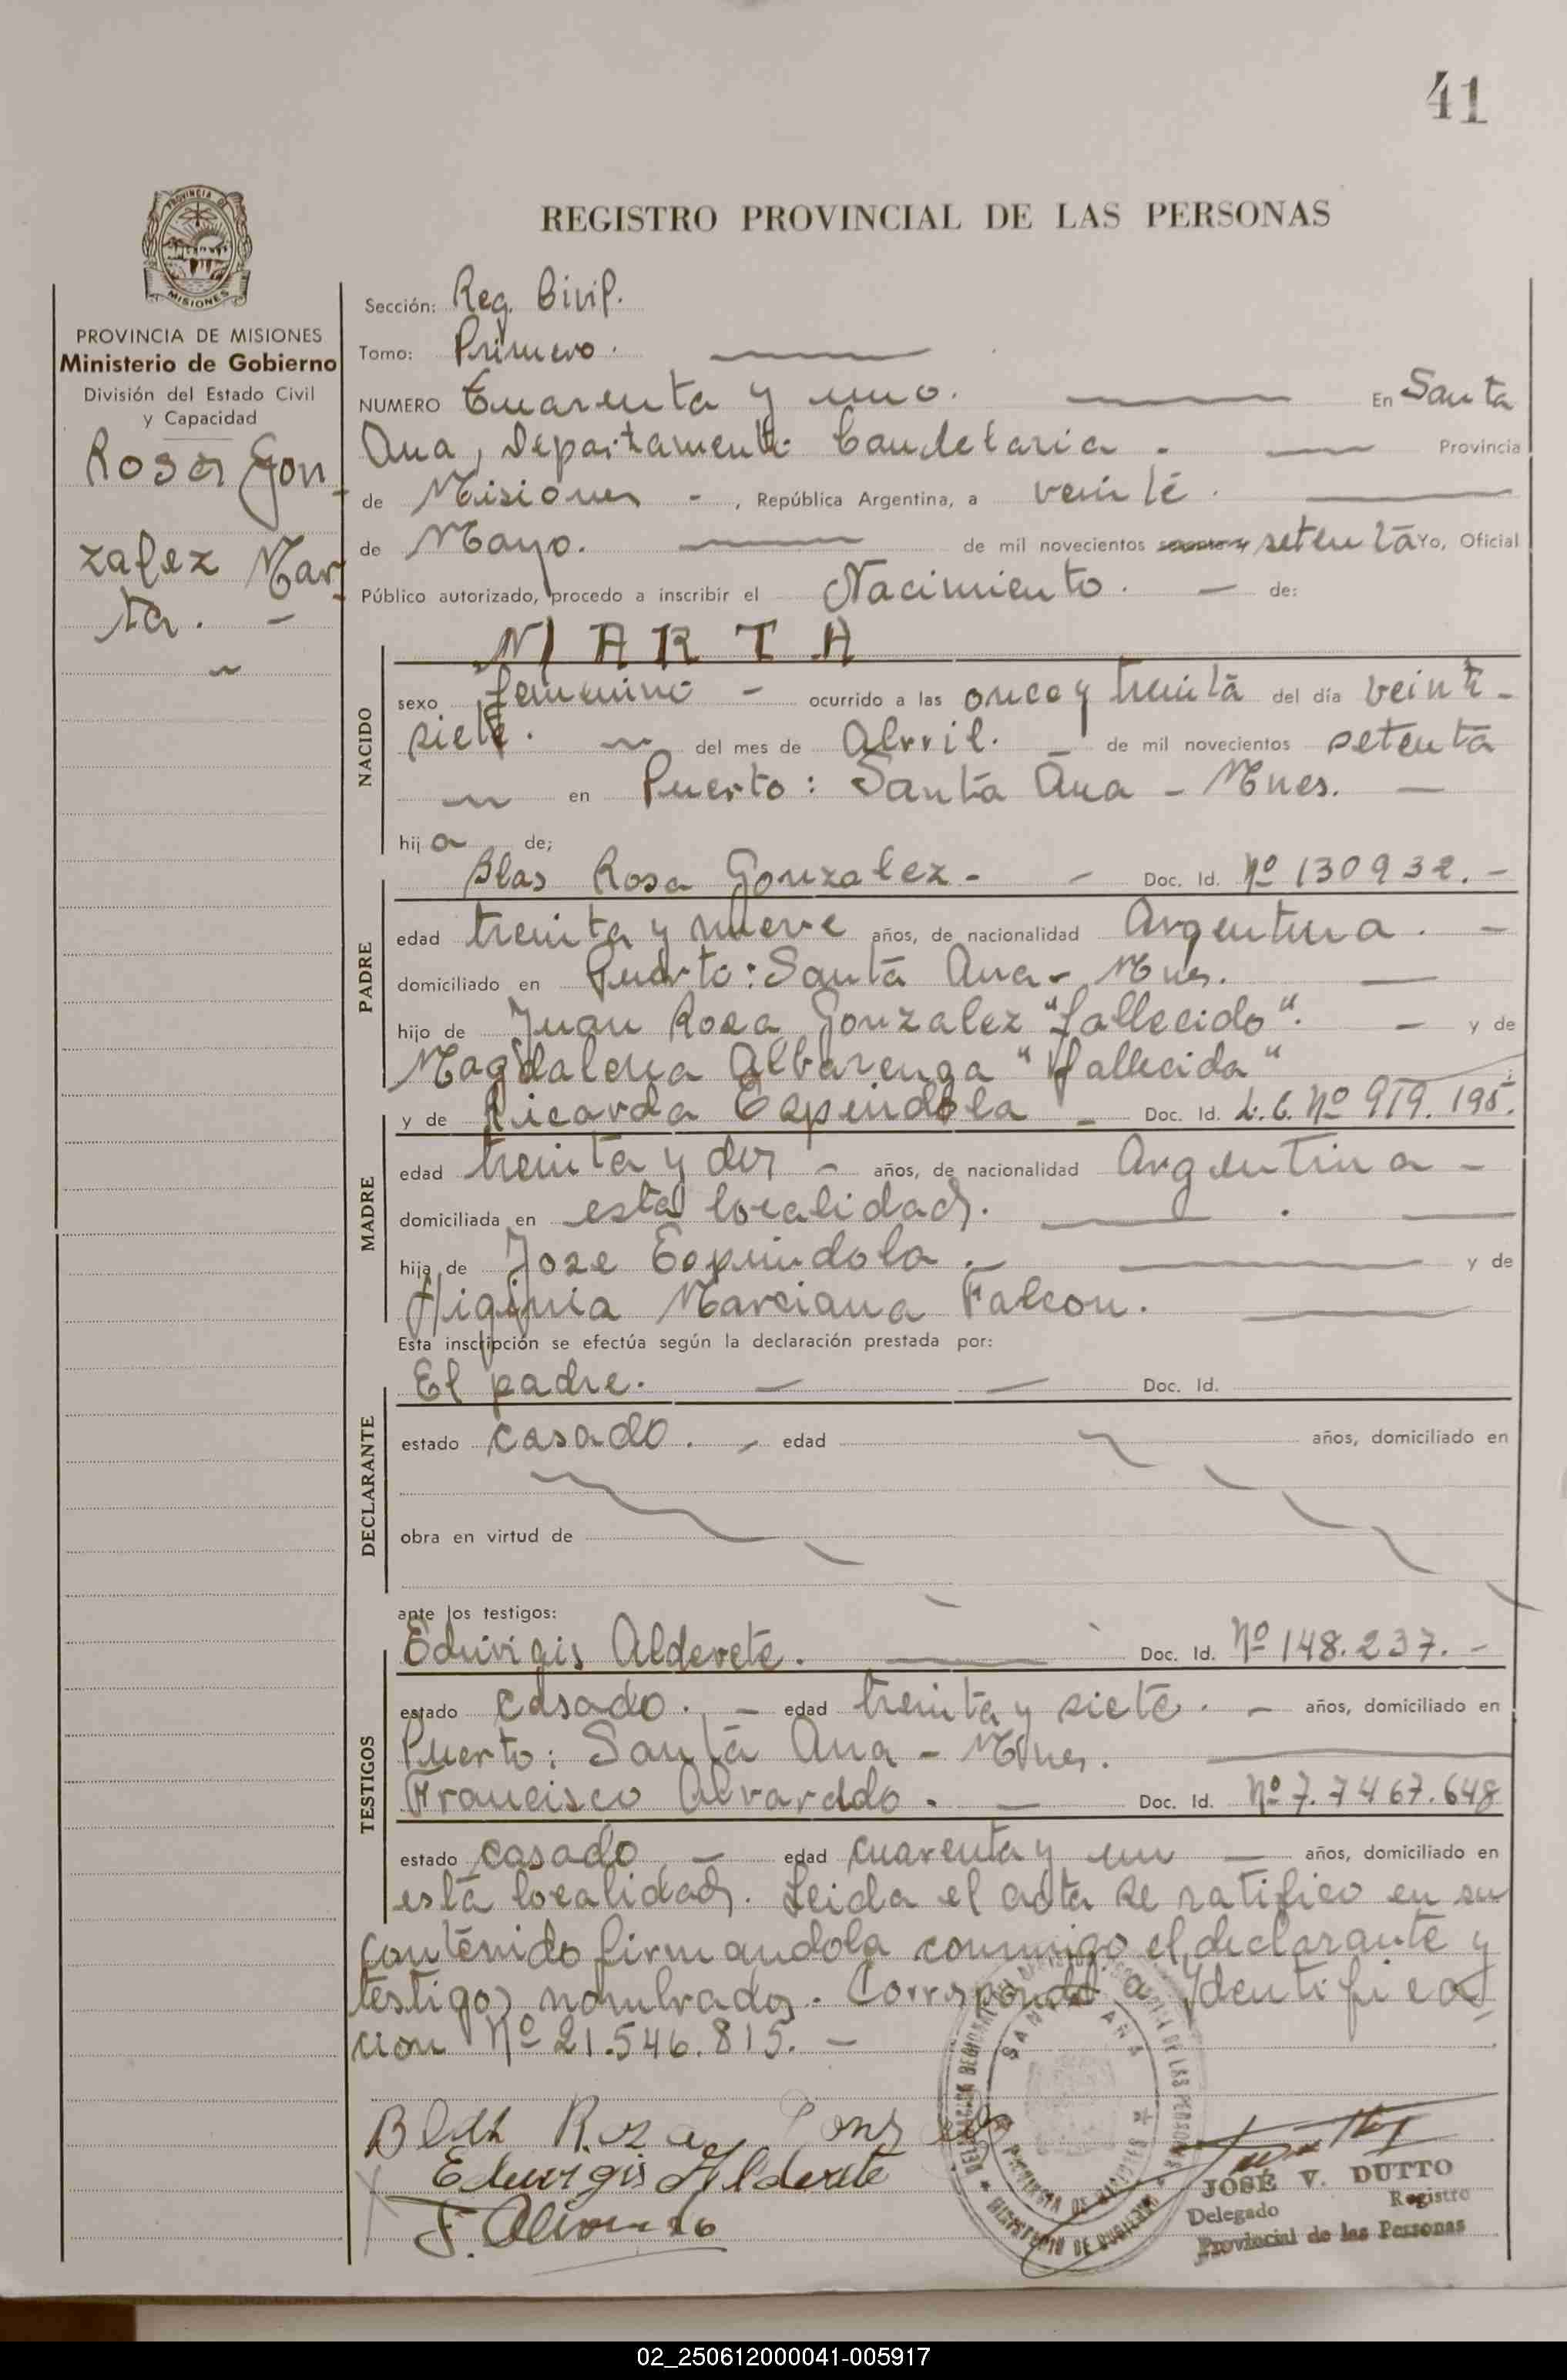 41
PROVINCIA DE
MISIONES
PROVINCIA DE MISIONES
Ministerio de Gobierno
División del Estado Civil
y Capacidad
Rosa Gon-
zalez Mar-
ta. -
REGISTRO PROVINCIAL DE LAS PERSONAS
Sección: Reg. Civil.
Tomo: Primero.
NUMERO Cuarenta y uno. En Santa
Ana, Departamento Candelaria. Provincia
de Misiones -, República Argentina, a veinte.
de Mayo. de mil novecientos setenta Yo, Oficial
Público autorizado, procedo a inscribir el Nacimiento. - de:
MARTA
NACIDO
sexo femenino - ocurrido a las once y treinta del día veinti-
siete. del mes de Abril. - de mil novecientos setenta
en Puerto: Santa Ana - Mnes. -
hija de;
PADRE
Blas Rosa Gonzalez - - Doc. Id. Nº 130932. -
edad treinta y nueve años, de nacionalidad Argentina. -
domiciliado en Puerto: Santa Ana - Mnes. -
hijo de Juan Rosa Gonzalez "fallecido". - y de
Magdalena Albarenga "fallecida"
MADRE
y de Ricarda Espindola - Doc. Id. L.C. Nº 919.195.
edad treinta y dos - años, de nacionalidad Argentina -
domiciliada en esta localidad.
hija de Jose Espindola. y de
Higinia Marciana Falcon.
Esta inscripción se efectúa según la declaración prestada por:
DECLARANTE
El padre. - - Doc. Id.
estado casado. - edad años, domiciliado en
obra en virtud de
ante los testigos:
TESTIGOS
Eduvigis Alderete. Doc. Id. Nº 148.237. -
estado casado. - edad treinta y siete. - años, domiciliado en
Puerto: Santa Ana - Mnes.
Francisco Alvarado. - Doc. Id. Nº 7.7467.648
estado casado - edad cuarenta y un - años, domiciliado en
esta localidad. Leida el acta se ratifico en su
contenido firmandola conmigo el declarante y
testigos nombrados. Corresponde a Identifica
cion Nº 21.546.815. -
Blas Rosa Gonz
Eduvigis Alderete
F. Alvarado
SANTA ANA
PROVINCIA DE MISIONES
MINISTERIO DE GOBIERNO
JOSÉ V. DUTTO
Delegado Registro
Provincial de las Personas
02_250612000041-005917